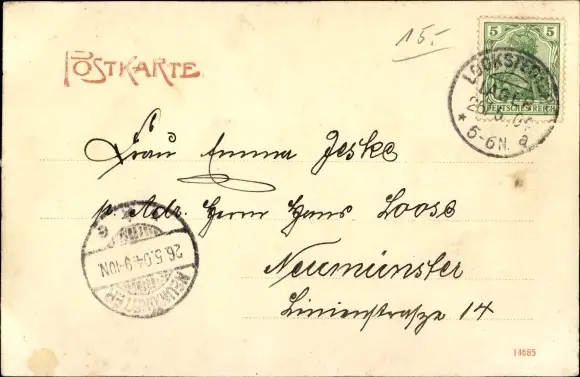 15.-
POSTKARTE.
5 5
DEUTSCHES REICH
LOCKSTEDTER
LAGER
* 5-6N. a
Frau Emma Jeske
p. Adr. Herrn Hans Loose
Neumünster
Linienstraße 14
NEUMÜNSTER
26.5.04.9-10N.
14685